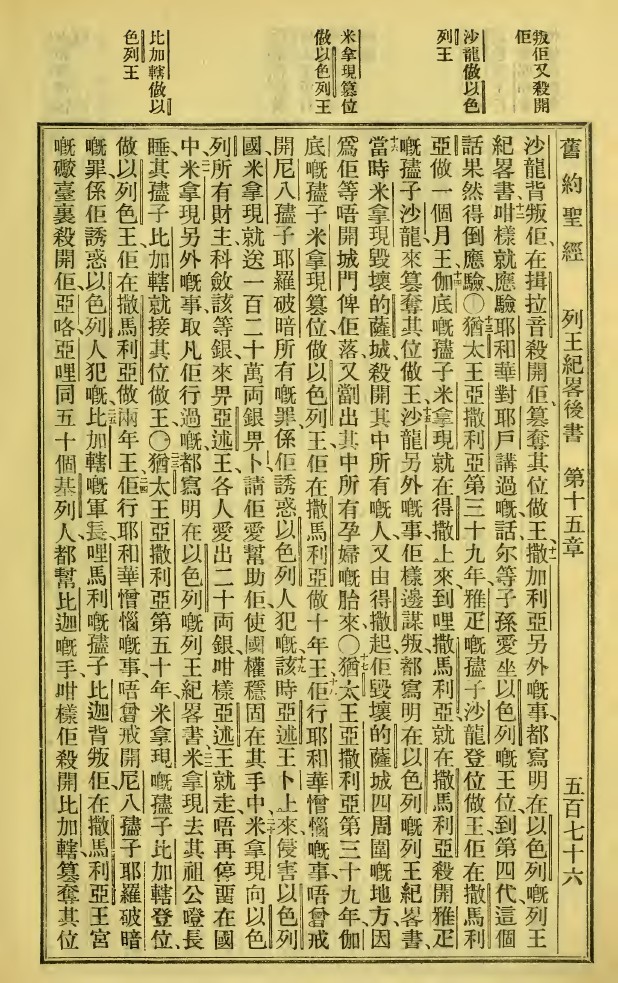 叛佢又殺開
佢
沙龍做以色
列王
米拿現篡位
做以色列王
比加轄做以
色列王
舊約聖經　列王紀畧後書　第十五章　五百七十六
沙龍背叛佢、在揖拉音殺開佢、篡奪其位做王、十一撒加利亞另外嘅事、都寫明在以色列嘅列王
紀畧書、十二咁樣就應驗耶和華對耶戶講過嘅話、尔等子孫愛坐以色列嘅王位、到第四代、這個
話果然得倒應驗○十三猶太王亞撒利亞第三十九年、雅疋嘅孻子沙龍登位做王、佢在撒馬利
亞做一個月王、十四伽底嘅孻子米拿現就在得撒上來、到哩撒馬利亞、就在撒馬利亞殺開雅疋
嘅孻子沙龍、來篡奪其位做王、十五沙龍另外嘅事、佢樣邊謀叛、都寫明在以色列嘅列王紀畧書、
十六當時米拿現毀壞的薩城、殺開其中所有嘅人、又由得撒起、佢毀壞的薩城四周圍嘅地方、因
爲佢等唔開城門俾佢落、又劏出其中所有孕婦嘅胎來○十七猶太王亞撒利亞第三十九年、伽
底嘅孻子米拿現篡位、做以色列王、佢在撒馬利亞做十年王、十八佢行耶和華憎惱嘅事、唔曾戒
開尼八孻子耶羅破暗所有嘅罪、係佢誘惑以色列人犯嘅、十九該時亞述王卜上來侵害以色列
國、米拿現就送一百二十萬両銀畀卜、請佢愛幫助佢、使國權穩固在其手中、二十米拿現向以色
列所有財主科斂該等銀來畀亞述王、各人愛出二十両銀、咁樣亞述王就走、唔再停畱在國
中、二一米拿現另外嘅事、取凡佢行過嘅、都寫明在以色列嘅列王紀畧書、二二米拿現去其祖公嗰長
睡、其孻子比加轄就接其位做王○二三猶太王亞撒利亞第五十年、米拿現嘅孻子比加轄登位、
做以列色王、佢在撒馬利亞做兩年王、二四佢行耶和華憎惱嘅事、唔曾戒開尼八孻子耶羅破暗
嘅罪、係佢誘惑以色列人犯嘅、二五比加轄嘅軍長哩馬利嘅孻子比迦背叛佢、在撒馬利亞王宮
嘅礮臺裏殺開佢、亞咯亞哩同五十個基列人、都幫比迦嘅手、咁樣佢殺開比加轄、篡奪其位